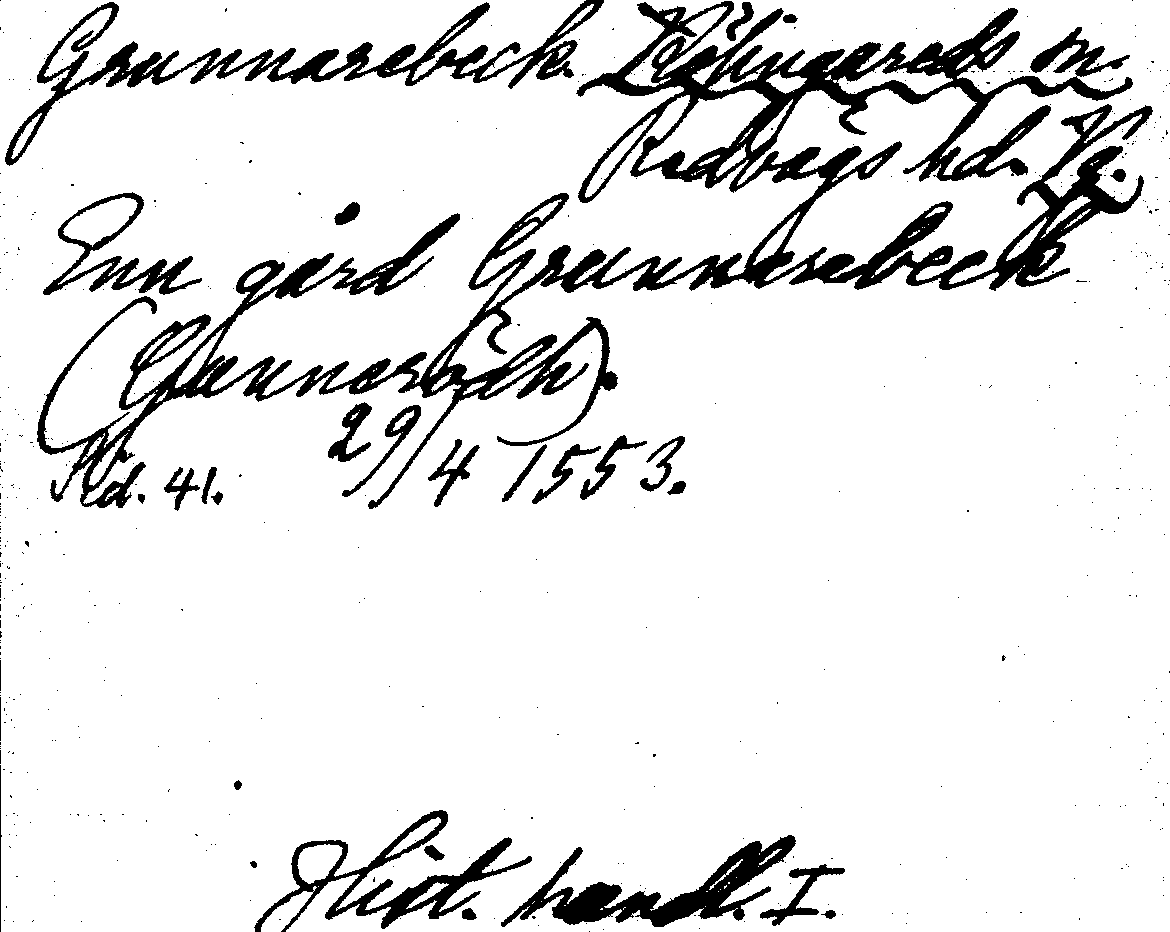 Grunnarebeck. Kölingareds sn.
Redvägs hd. Vg.
Enn gård Grunnarebeck
(Gunneradh).
Sid. 41. 29/4 1553.
Hist. handl. I.